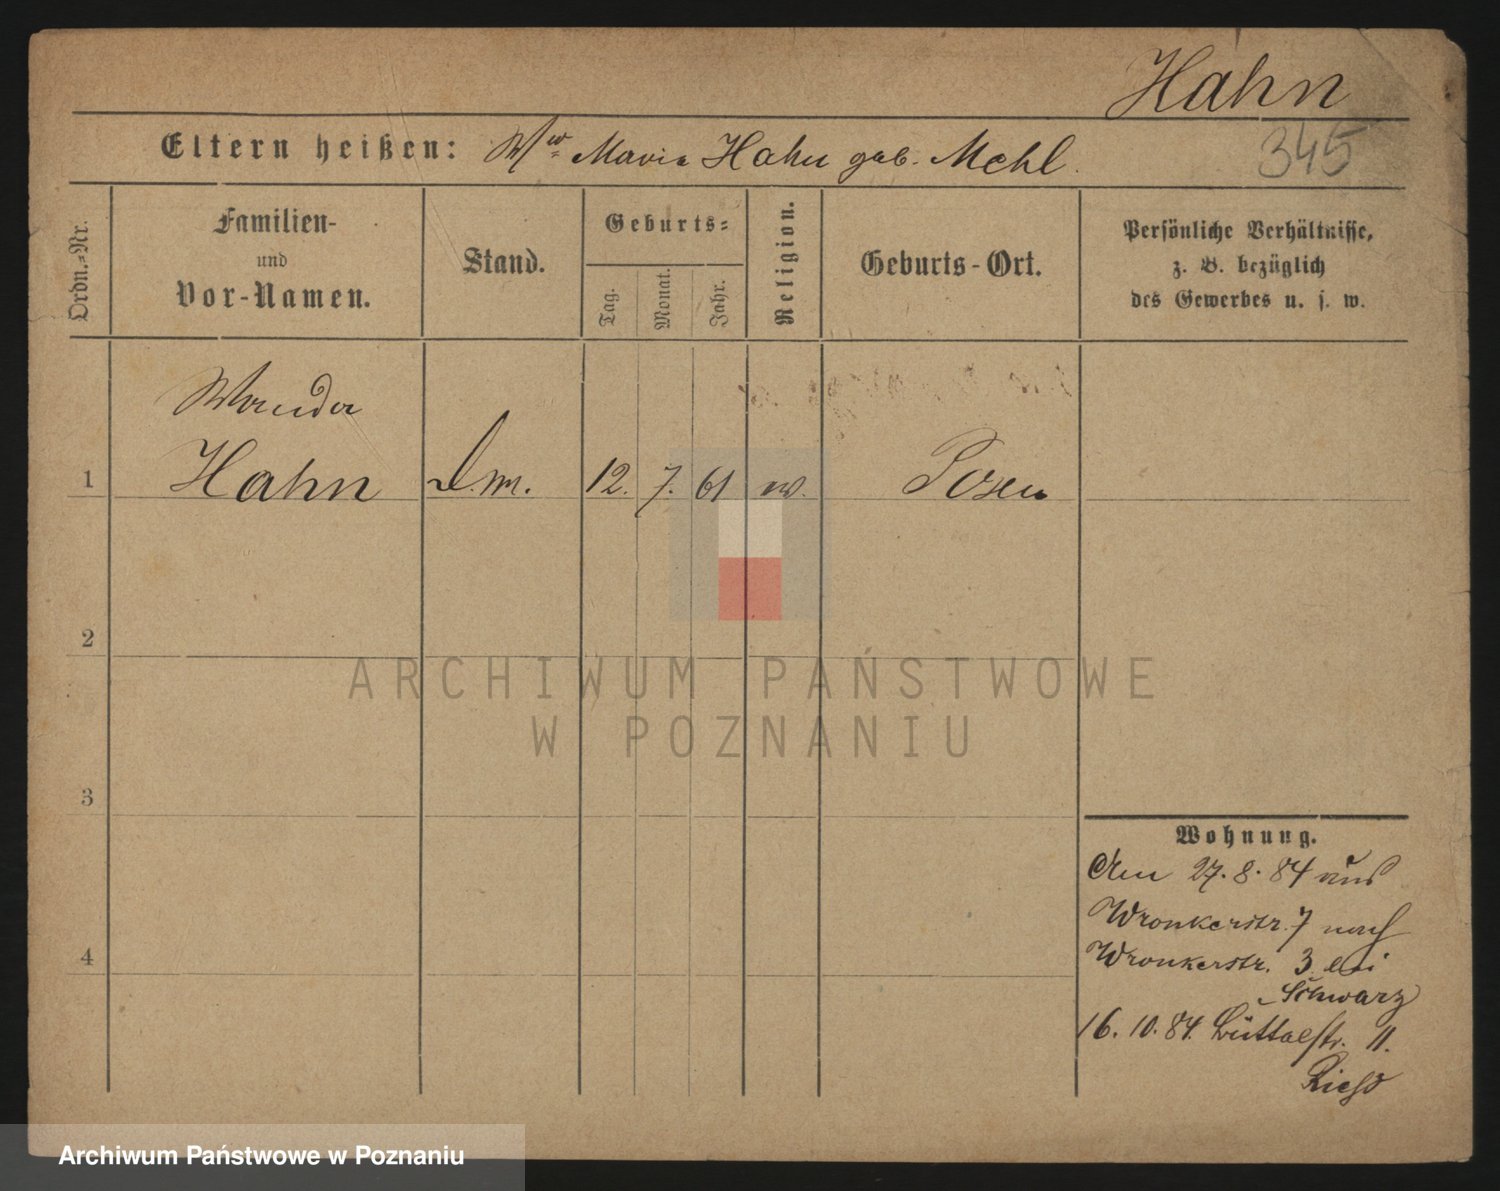 Hahn
345
Eltern heißen: Ww. Maria Hahn geb. Mehl.
Ordn.-Nr.
Familien-
und
Vor-Namen.
Stand.
Geburts-
Tag.
Monat.
Jahr.
Religion.
Geburts-Ort.
Persönliche Verhältnisse,
z. B. bezüglich
des Gewerbes u. s. w.
Wanda
1 Hahn 12. 7. 61 ev. Posen
2
ARCHIWUM PAŃSTWOWE
W POZNANIU
3
4
Wohnung.
Am 27. 8. 84 aus
Wronkerstr. 7 nach
Wronkerstr. 3 bei
Schwarz
16. 10. 84. Büttelstr. 11.
Archiwum Państwowe w Poznaniu